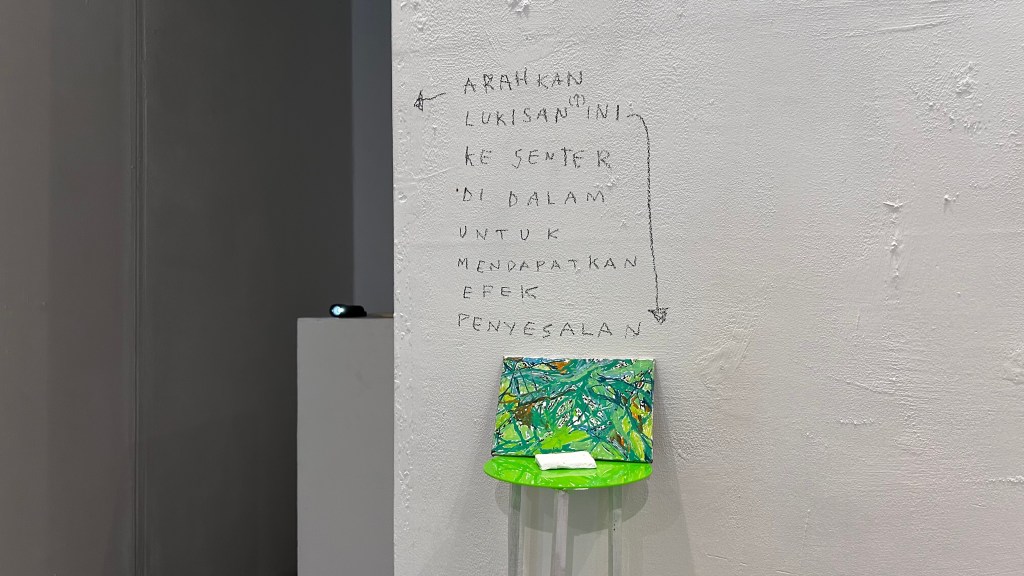 ARAHKAN
LUKISAN(↑)INI
KE SENTER
DI DALAM
UNTUK
MENDAPATKAN
EFEK
PENYESALAN